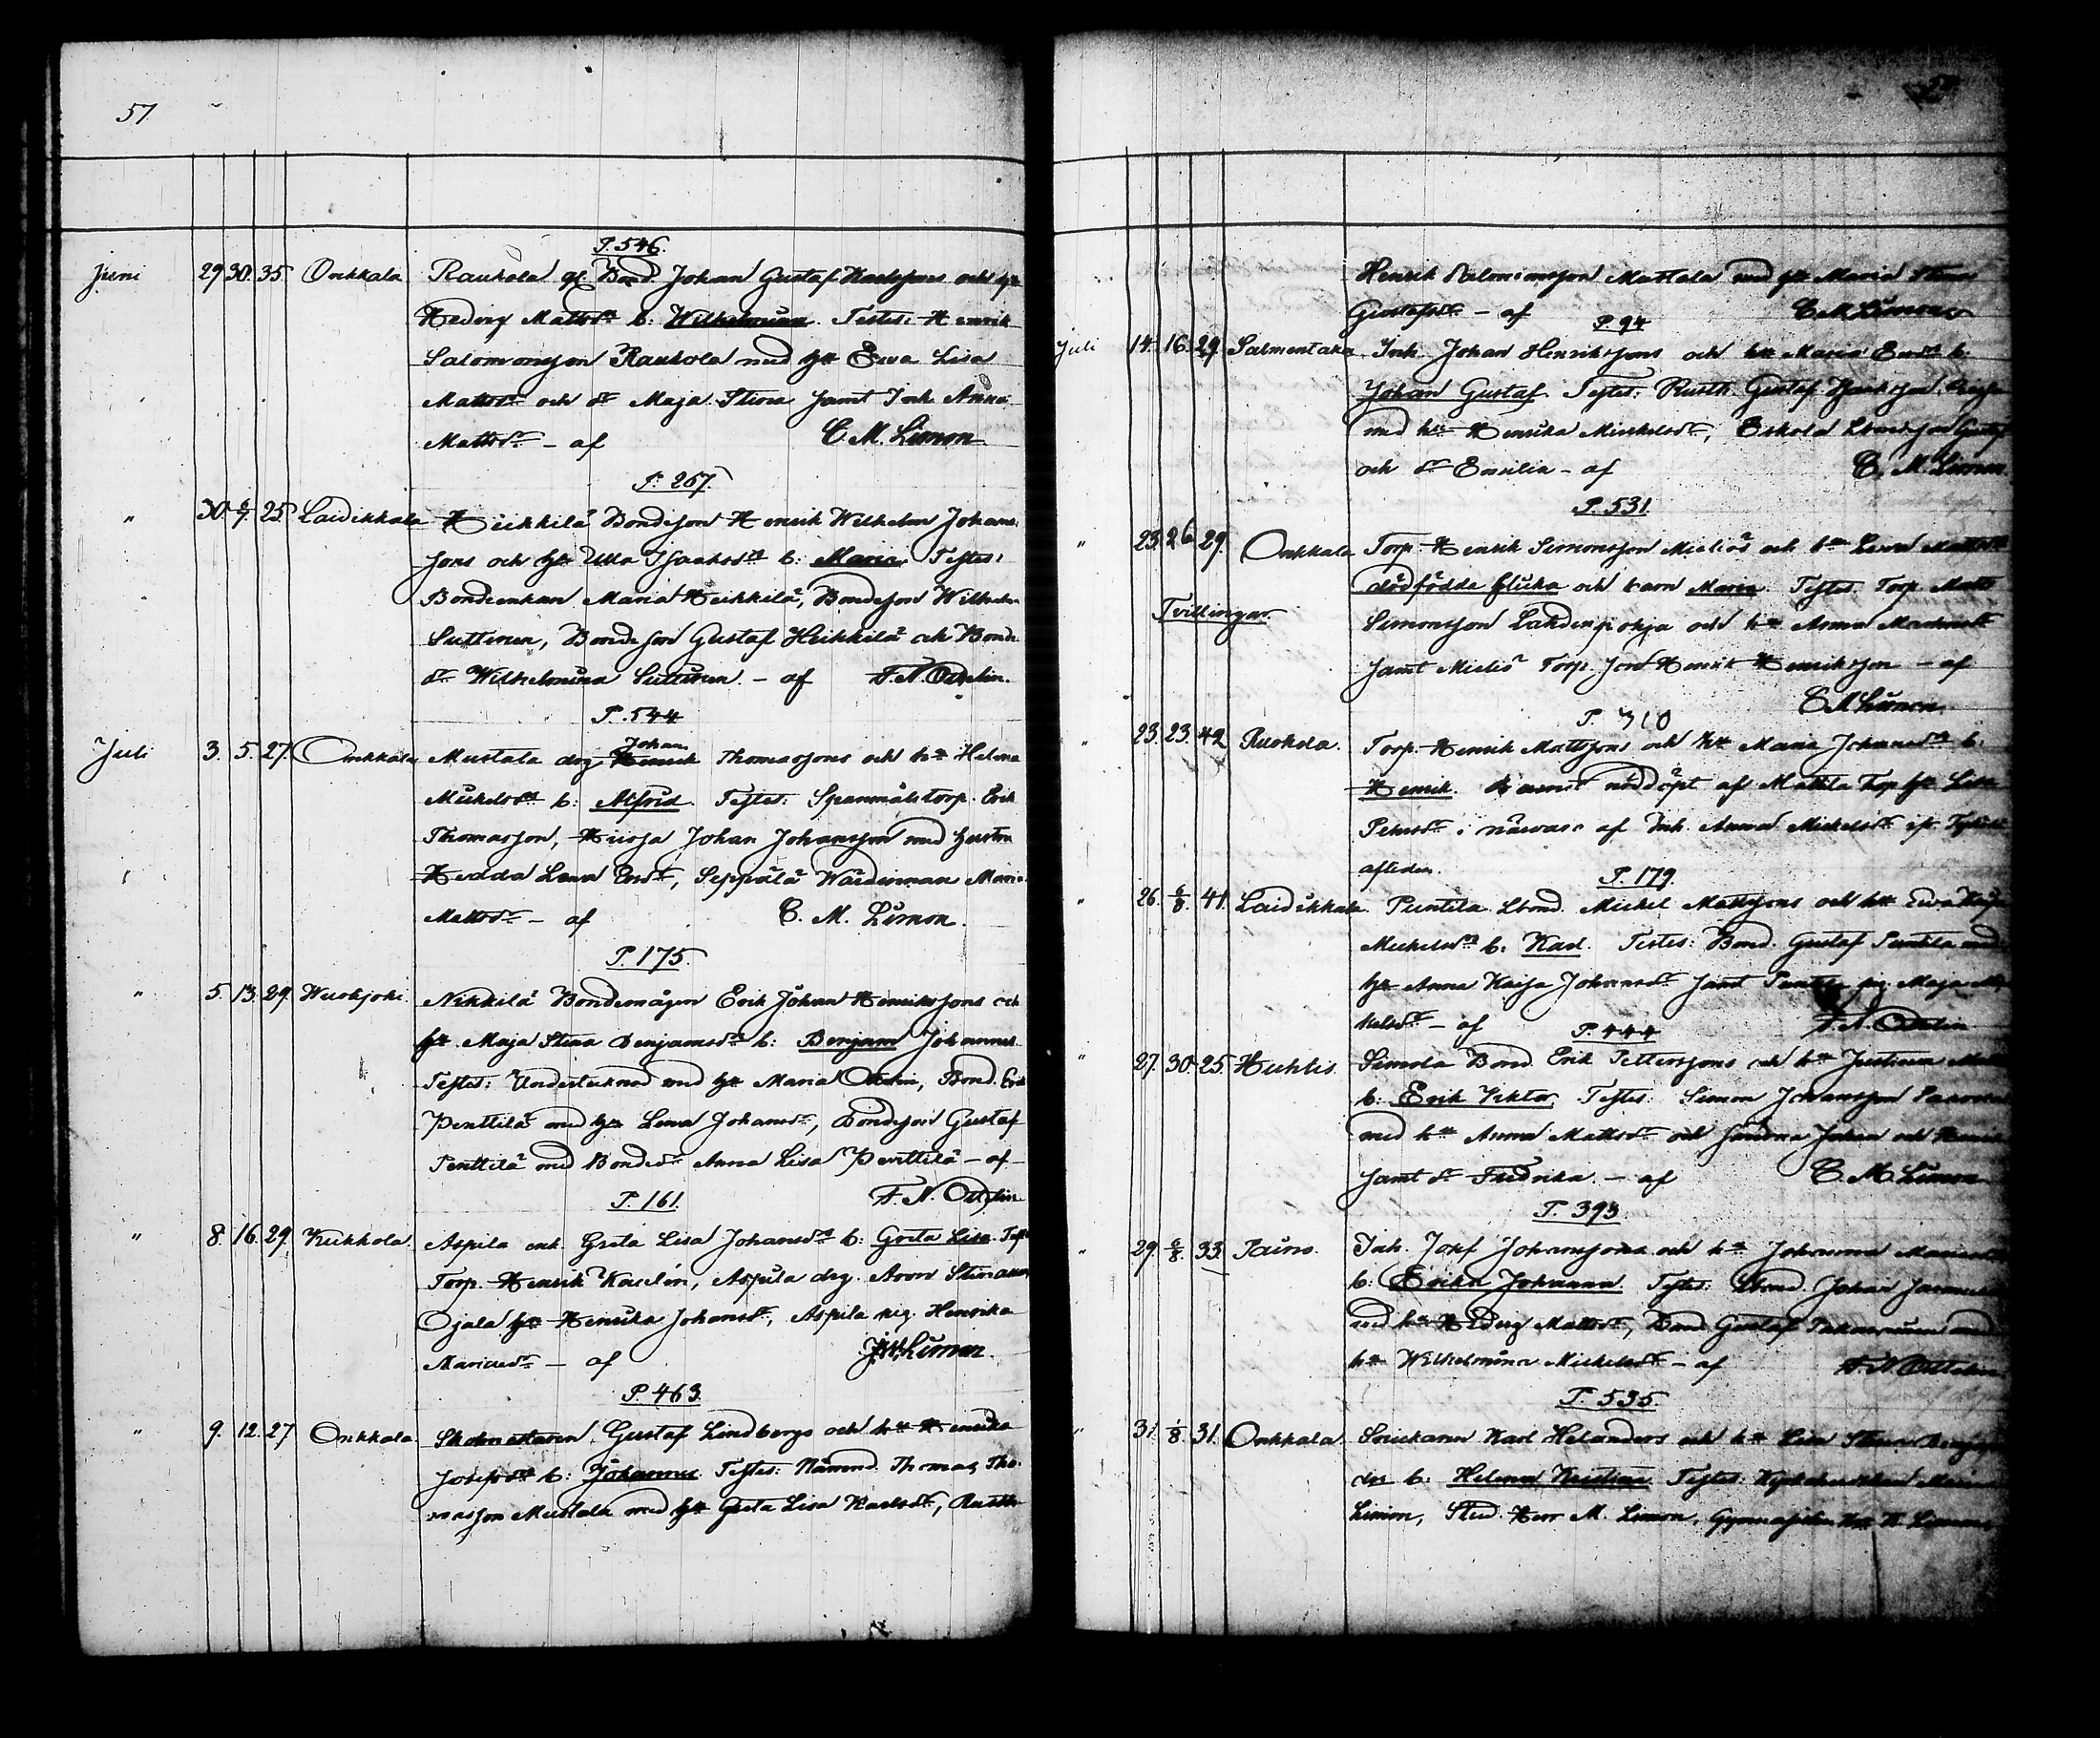 57
P. 546.
Juni 29 30. 35. Onkkala Raukola gl. Bond. Johan Gustaf Karlssons och h:
Hedvig Mattsdr b: Wilhelmina. Testes: Henrik
Salomonsson Raukola med h: Ewa Lisa
Mattsdr och dr Maja Stina samt Inh. Anna
Mattsdr - af C. M. Limon
P. 267.
" 30. 6/7. 25. Laidikkala Heikkilä Bondeson Henrik Wilhelm Johans
sons och h: Ulla Isaaksdr b: Maria. Testes:
Bondeenkan Maria Heikkilä, Bondeson Wilhelm
Suttinen, Bondeson Gustaf Heikkilä och Bonde
dr Wilhelmina Suttinen. - af F. N. Ottelin.
P. 544
Juli 3. 5. 27. Onkkala Mustala drg Johan Henrik Thomassons och h: Helena
Mickelsdr b: Alfrid. Testes: Spanmåls torp. Erik
Thomasson, Huoja Johan Johansson med hustru
Hedda Lena Ersdr, Seppälä Wärdinnan Maria
Mattsdr - af C. M. Limon.
P. 175.
" 5. 13. 29. Wuohjoki. Nikkilä Bondemågen Erik Johan Henrikssons och
h: Maja Stina Benjamsdr b: Benjam Johannes.
Testes: Undertecknad med h: Maria Ottelin, Bond. Erik
Penttilä med h: Lena Johansdr, Bondeson Gustaf
Penttilä med Bondedr Anna Lisa Penttilä - af
P. 161. F. N. Ottelin
" 8. 16. 29. Kukkola. Aspila enk. Greta Lisa Johansdr b: Greta Lisa. Test
Torp. Henrik Kaselén, Aspila drg. Aron
Ojala h: Henrika Johansdr, Aspila pig. Henrika
Mariaedr - af Limon.
P. 463.
" 9. 12. 27 Onkkala. Skomakaren Gustaf Lindbergs och h: Henrika
Josefsdr b: Johannes. Testes: Nämnd. Thomas Tho-
masson Mustala med h: Greta Lisa Karlsdr, Rusth.
Henrik Salomonsson Mattala med h: Maria Stina
Gustafsdr - af C M Limon
P. 94
Juli 14. 16. 29. Salmentaka Inh. Johan Henrikssons och h: Maria Ersdr b:
Johan Gustaf. Testes: Rusth. Gustaf
med h: Henrika Mickelsdr, Eskola Lbondeson Gustaf
och dr Emilia - af C. M. Limon.
P. 531.
" 23. 26. 29. Onkkala Torp. Henrik Simonsson Mieliös och h: Lena Mattsdr
dödfödde flicka och barn Maria. Testes: Torp. Matts
Tvillingar. Simonsson Lahdenpohja och h: Anna
samt Mieliö Torp. son Henrik Henriksson - af
C M Limon.
P. 310
" 23. 23. 42 Ruokola. Torp. Henrik Mattssons och h: Maria Johansdr b:
Henrik. Barnet nöddöpt af Mattila Torp h: Lisa
Petersdr i närvaro af Inh. Anna Mickelsdr
afliden.
P. 179.
" 26. 6/8. 41. Laidikkala. Puntila Lbond. Mickel Mattssons och h: Ewa Kaisa
Mickelsdr b: Karl. Testes: Bond. Gustaf Puntila med
h: Anna Kaisa Johansdr samt Puntila pig. Maja Mic-
kelsdr - af F. N. Ottelin
P. 444
" 27. 30. 25. Huhtis. Simola Bond. Erik Petterssons och h: Justina
b: Erik Viktor. Testes: Simon Johansson
med h: Anna Mattsdr och sönerna Johan och
samt dr Fredrika. - af C. M. Limon
P. 393.
" 29. 6/8. 33. Painos. Inh. Josef Johanssons och h: Johanna
b: Erika Johanna. Testes: Lbond. Johan
med h: Hedvig Mattsdr, Bond Gustaf med
h: Wilhelmina Mickelsdr - af F. N. Ottelin
P. 535.
" 31. 1/8. 31. Onkkala. Snickaren Karl Helanders och h: Lisa Stina
dr b: Helena Kristina. Testes: Maria
Limon, Stud. Herr M. Limon, Gymnasisten Herr K. Limon